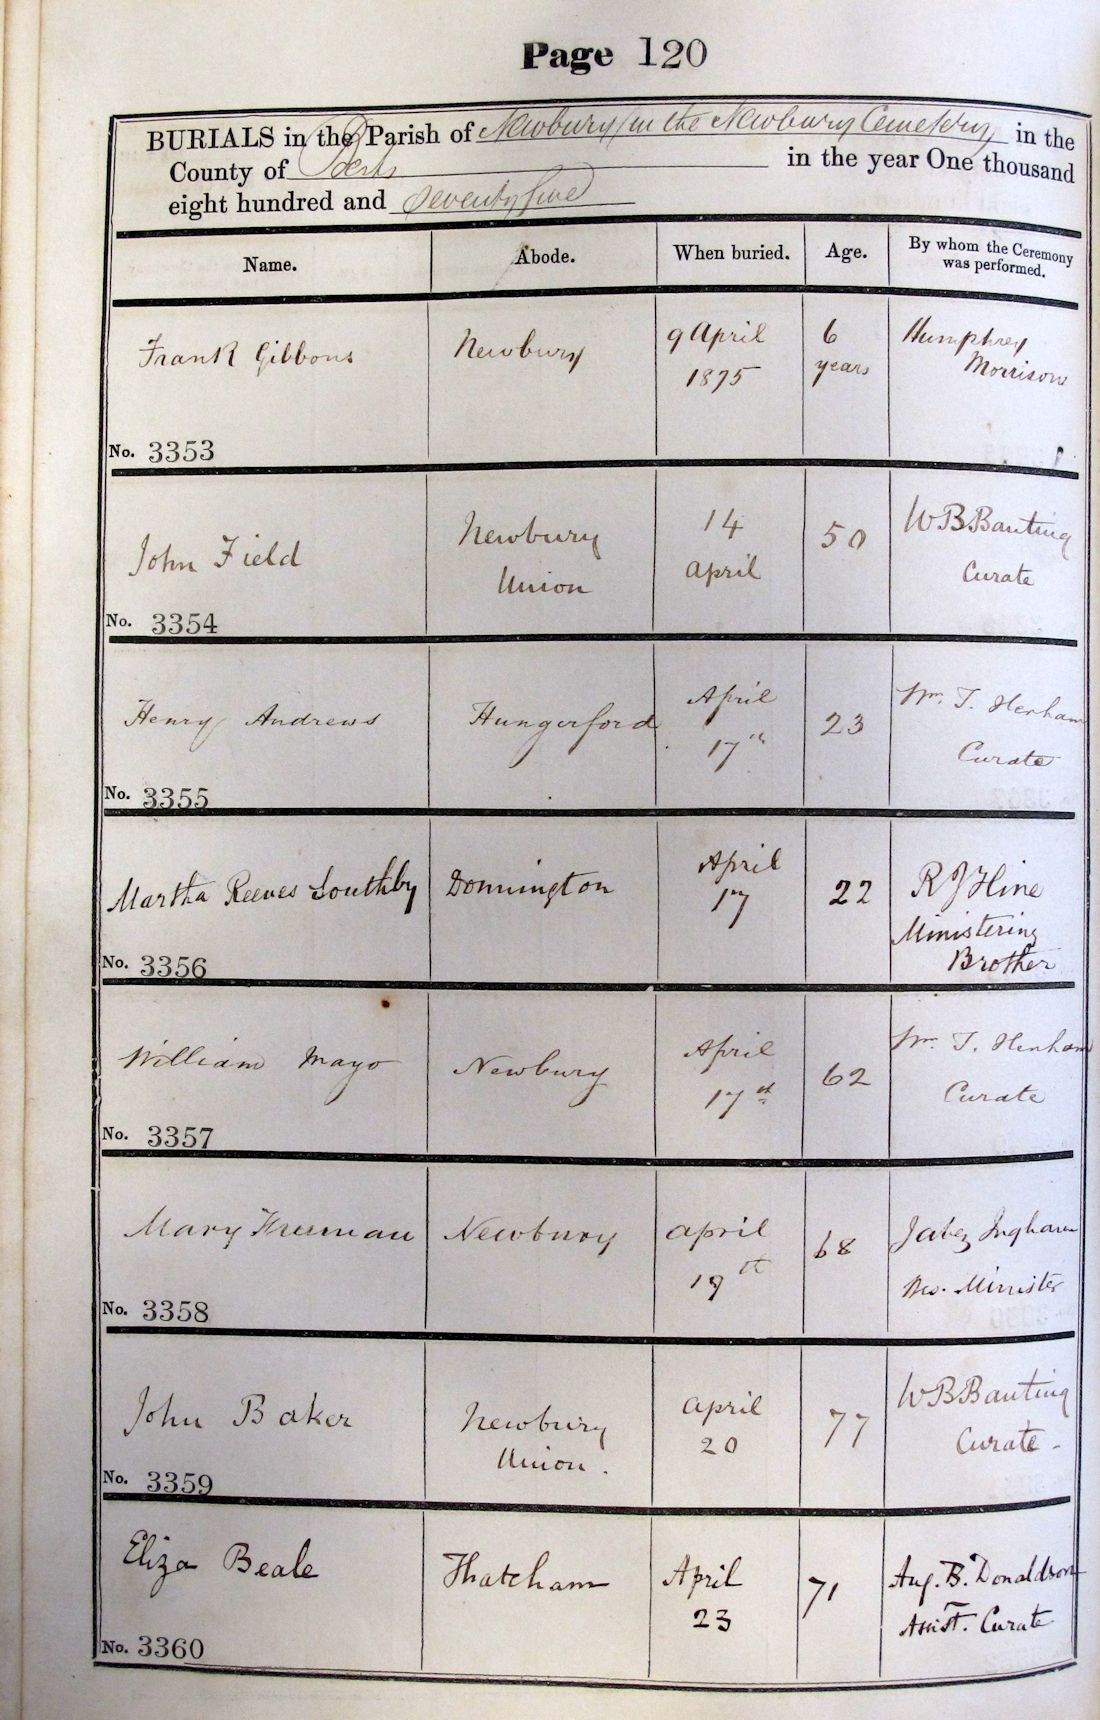 Page 120
BURIALS in the Parish of Newbury in the Newbury Cemetery in the
County of Berks in the year One thousand
eight hundred and seventy five
Name. Abode. When buried. Age. By whom the Ceremony
was performed.
Frank Gibbons Newbury 9 April 6 Humphrey
1875 years Morrison
No. 3353
John Field Newbury 14 50 W B Banting
Union April Curate
No. 3354
Henry Andrews Hungerford April 23 Wm. T. Henham
17th Curate
No. 3355
Martha Reeves Southby Donnington April 22 R J Hine
17 Ministering
Brother
No. 3356
William Mayo Newbury April 62 Wm. T. Henham
17th Curate
No. 3357
Mary Freeman Newbury April 68 Jabez Ingham
19th Minister
No. 3358
John Baker Newbury April 77 W B Banting
Union. 20 Curate -
No. 3359
Eliza Beale Thatcham April 71 Aug. B. Donaldson
23 Assist. Curate
No. 3360